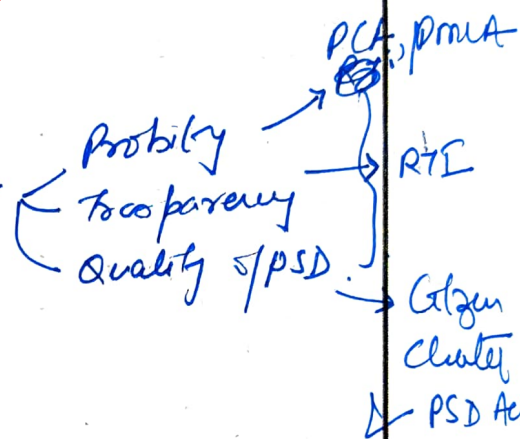 PCA, PMLA
Probity
Trasparency
RTI
Quality of PSD.
Citzen
Charter
PSD Ac